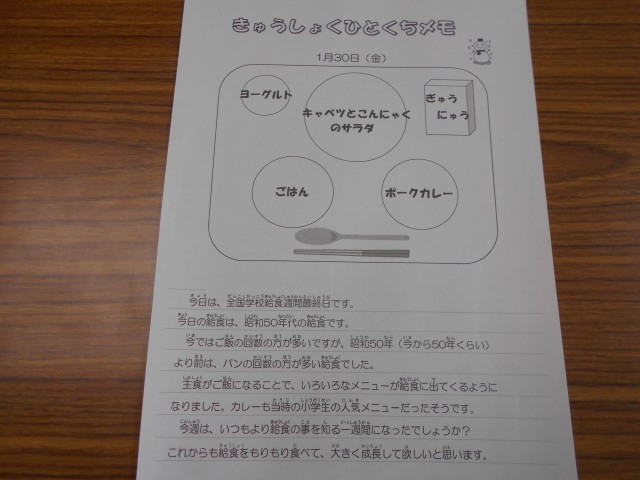 きゅうしょくひとくちメモ
1月30日（金）
ヨーグルト
キャベツとこんにゃく
のサラダ
ぎゅう
にゅう
ごはん
ポークカレー
今日は、全国学校給食週間最終日です。
今日の給食は、昭和50年代の給食です。
今ではご飯の回数の方が多いですが、昭和50年（今から50年くらい）
より前は、パンの回数の方が多い給食でした。
主食がご飯になることで、いろいろなメニューが給食に出てくるように
なりました。カレーも当時の小学生の人気メニューだったそうです。
今週は、いつもより給食の事を知る一週間になったでしょうか？
これからも給食をもりもり食べて、大きく成長して欲しいと思います。